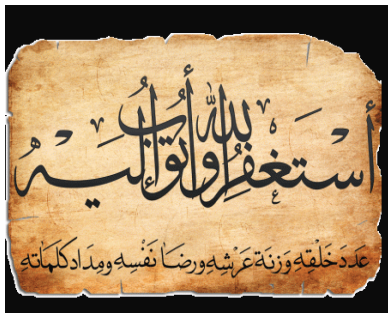 أستغفر الله وأتوب إليه
عَدَدَ خَلْقِهِ وَزِنَةَ عَرْشِهِ ورضَا نَفْسِهِ ومِدَاد كلمَاته